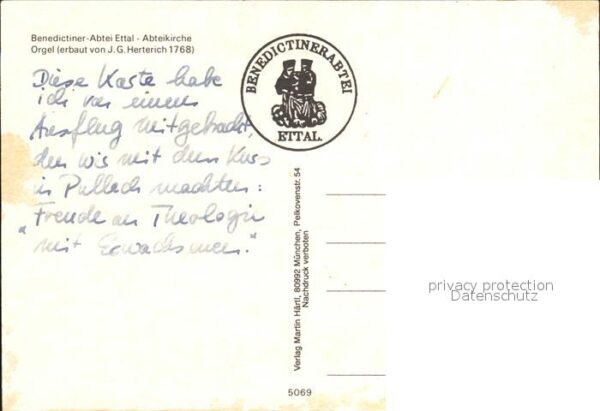 Benedictiner-Abtei Ettal - Abteikirche
Orgel (erbaut von J.G. Herterich 1768)
BENEDICTINERABTEI
ETTAL.
Diese Karte habe
ich von einem
Ausflug mitgebracht,
den wir mit dem Kurs
in Pullach machten:
"Freude an Theologie
mit Erwachsenen."
Verlag Martin Härtl, 80992 München, Pelkovenstr. 54
Nachdruck verboten
privacy protection
Datenschutz
5069